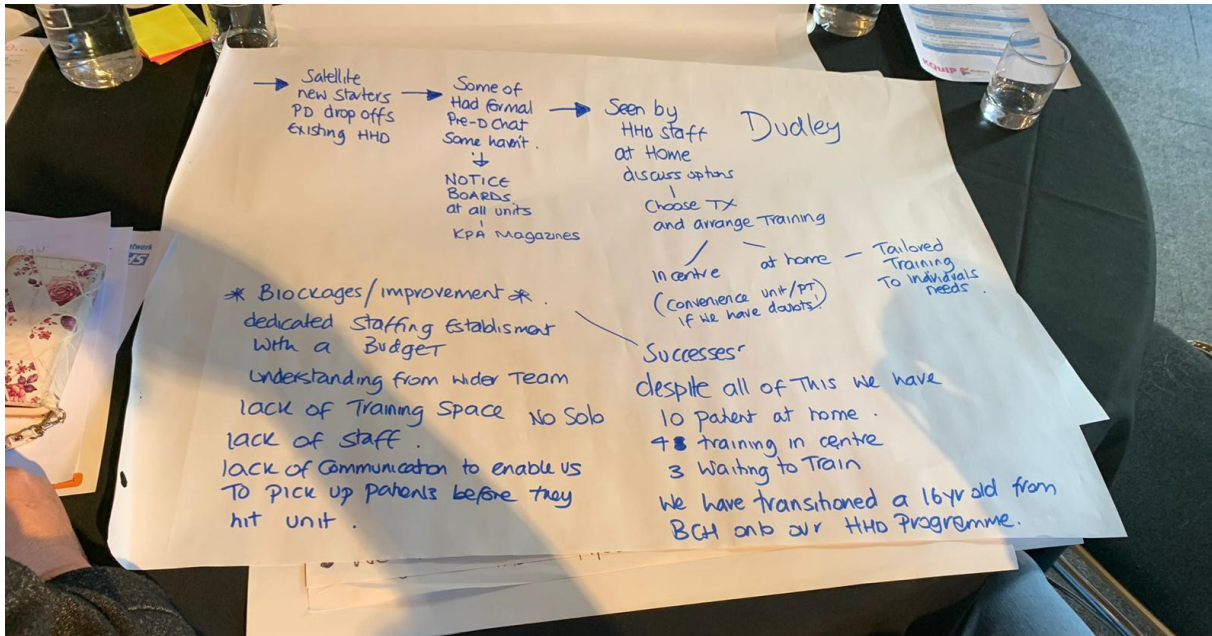 Satellite
new starters
PD drop offs
Existing HHD
Some of
Had formal
Pre-D Chat
Some haven't.
NOTICE
BOARDS
at all units
KPA Magazines
Seen by
HHD staff
at Home
discuss options
Choose TX
and arrange Training
In centre
(Convenience unit/PT)
if we have doubts!
at home
Tailored
Training
To individuals
needs.
Dudley
* Blockages/improvement *.
dedicated Staffing Establisment
with a Budget
understanding from wider Team
lack of Training Space No Solo
lack of staff.
lack of Communication to enable us
To pick up patients before they
hit unit.
Successes
despite all of This we have
10 patient at home.
4 training in centre
3 Waiting to Train
We have transitioned a 16yr old from
BCH onto our HHD Programme.
KQUIP